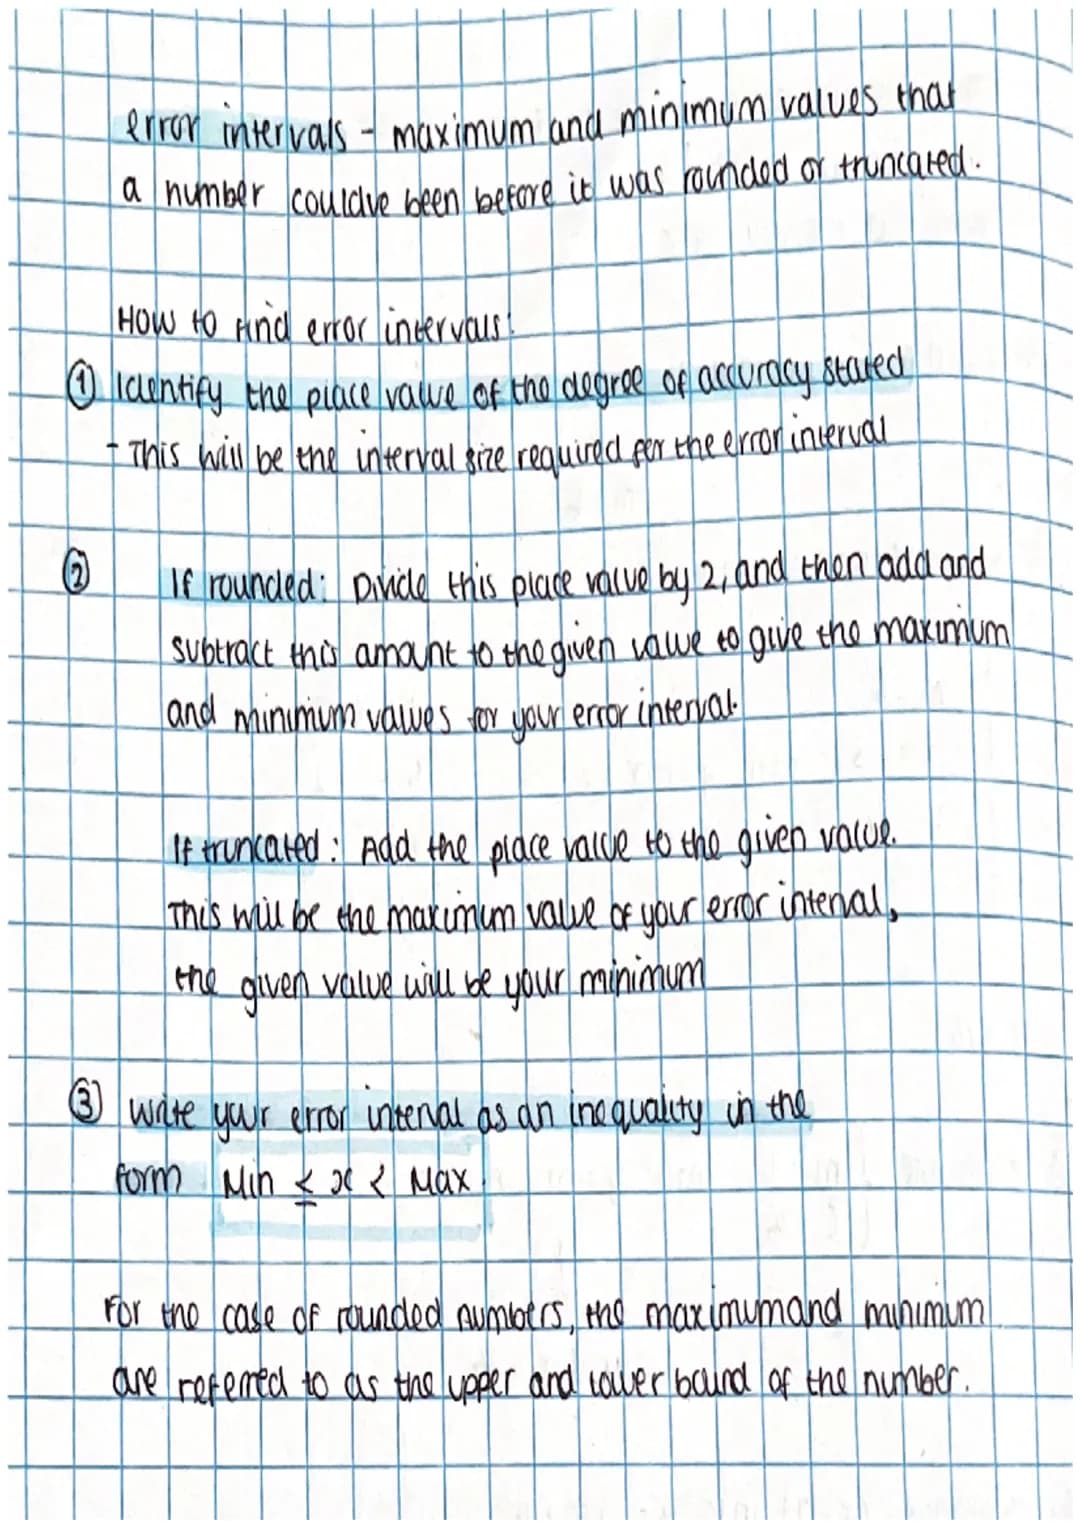 error intervals - maximum and minimum values that
a number could've been before it was rounded or truncated.
How to find error intervals:
① Identify the place value of the degree of accuracy stated
- This will be the interval size required for the error interval
② If rounded: Divide this place value by 2, and then add and
subtract this amount to the given value to give the maximum
and minimum values for your error interval.
If truncated: Add the place value to the given value.
This will be the maximum value of your error interval,
the given value will be your minimum
③ write your error interval as an inequality in the
form Min ≤ x < Max.
For the case of rounded numbers, the maximum and minimum
are referred to as the upper and lower bound of the number.